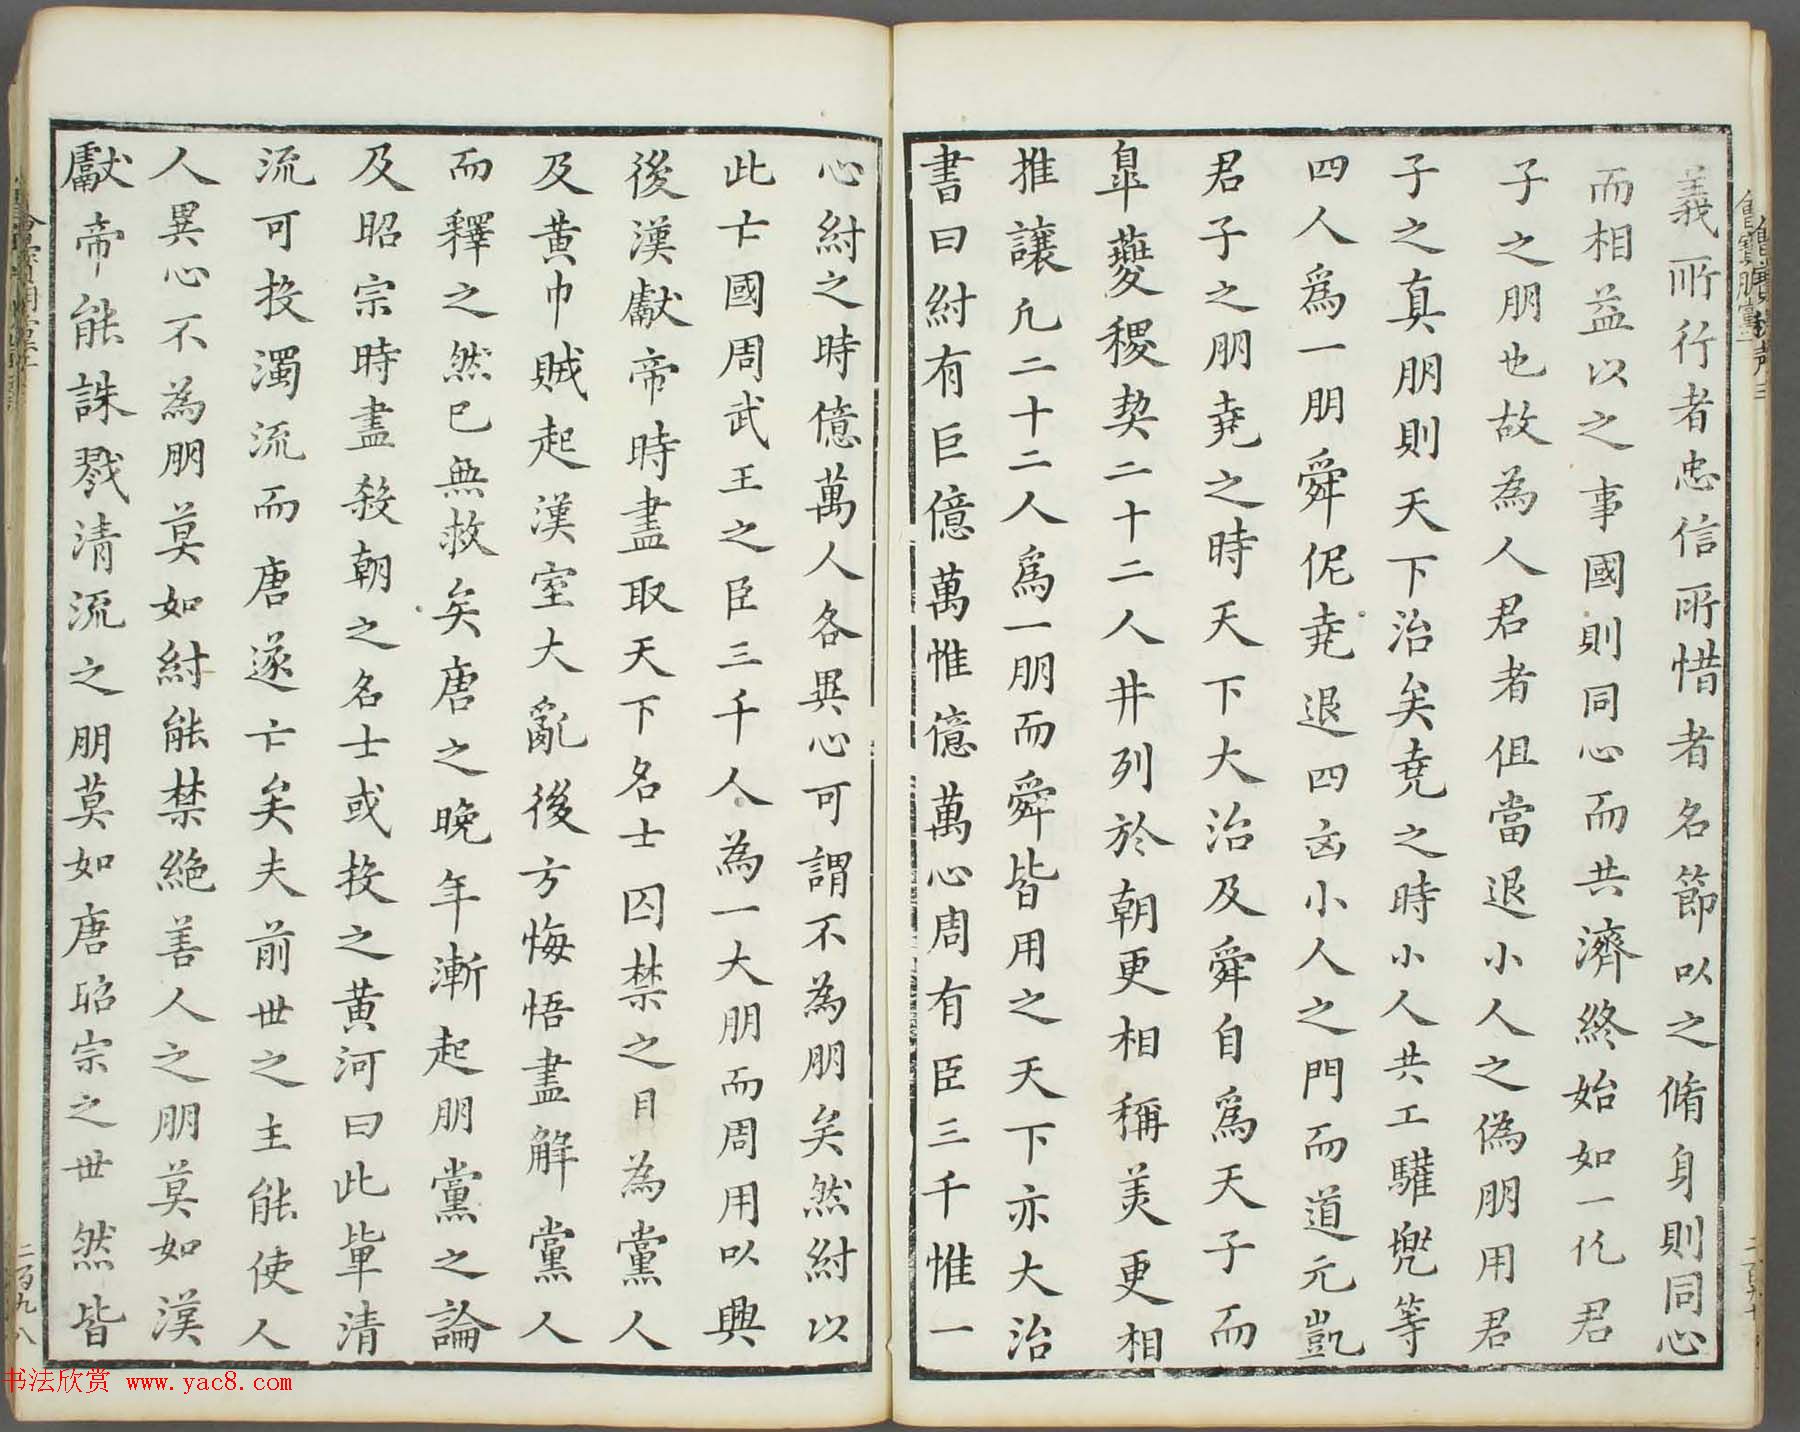 義所行者忠信所惜者名節以之脩身則同心
而相益以之事國則同心而共濟終始如一此君
子之朋也故為人君者但當退小人之偽朋用君
子之真朋則天下治矣堯之時小人共工驩兜等
四人爲一朋舜佐堯退四凶小人之門而道元凱
君子之朋堯之時天下大治及舜自爲天子而
皐夔稷契二十二人并列於朝更相稱美更相
推讓凢二十二人爲一朋而舜皆用之天下亦大治
書曰紂有臣億萬惟億萬心周有臣三千惟一
心紂之時億萬人各異心可謂不為朋矣然紂以
此亡國周武王之臣三千人為一大朋而周用以興
後漢獻帝時盡取天下名士囚禁之目為黨人
及黄巾賊起漢室大亂後方悔悟盡解黨人
而釋之然已無救矣唐之晚年漸起朋黨之論
及昭宗時盡殺朝之名士或投之黄河曰此軰清
流可投濁流而唐遂亡矣夫前世之主能使人
人異心不為朋莫如紂能禁絶善人之朋莫如漢
獻帝能誅戮清流之朋莫如唐昭宗之世然皆
二百九八
书法欣赏 www.yac8.com